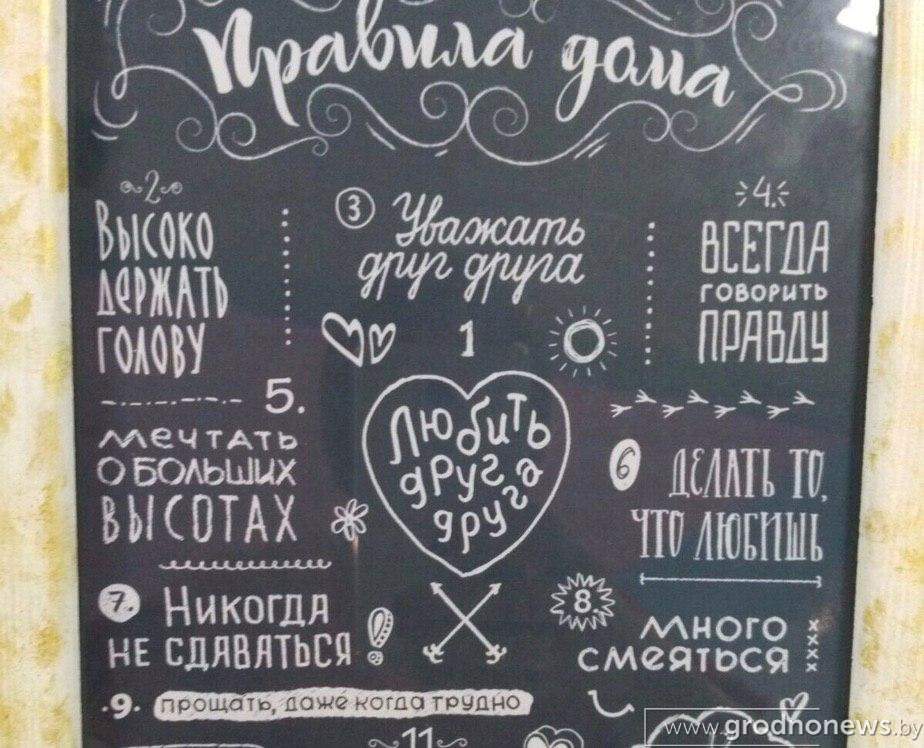 Правила дома
2
Высоко
держать
голову
3 Уважать
друг друга
4.
Всегда
говорить
правду
1
Любить
друг
друга
5.
Мечтать
о больших
высотах
6 Делать то,
что любишь
7. Никогда
не сдаваться
8.
Много
смеяться
xxxx
·9· прощать, даже когда трудно
11
www.grodnonews.by